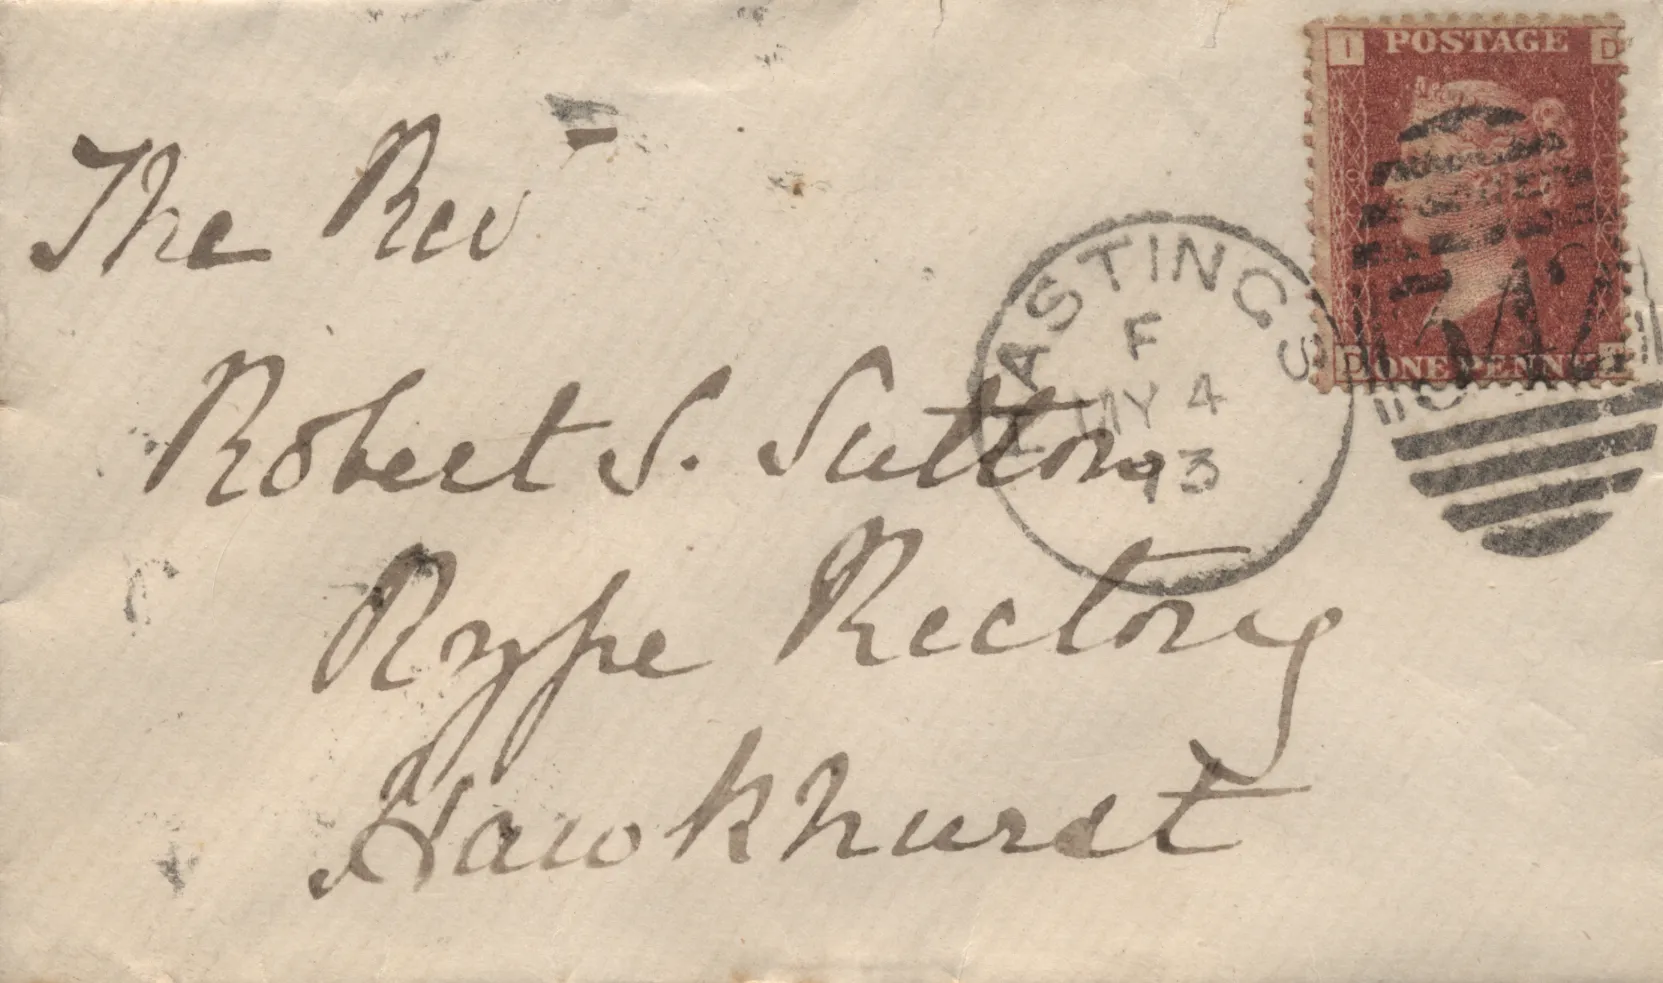 I POSTAGE D
D ONE PENNY I
HASTINGS
F
MY 4
73
The Rev
Robert S. Sutton
Rype Rectory
Hawkhurst